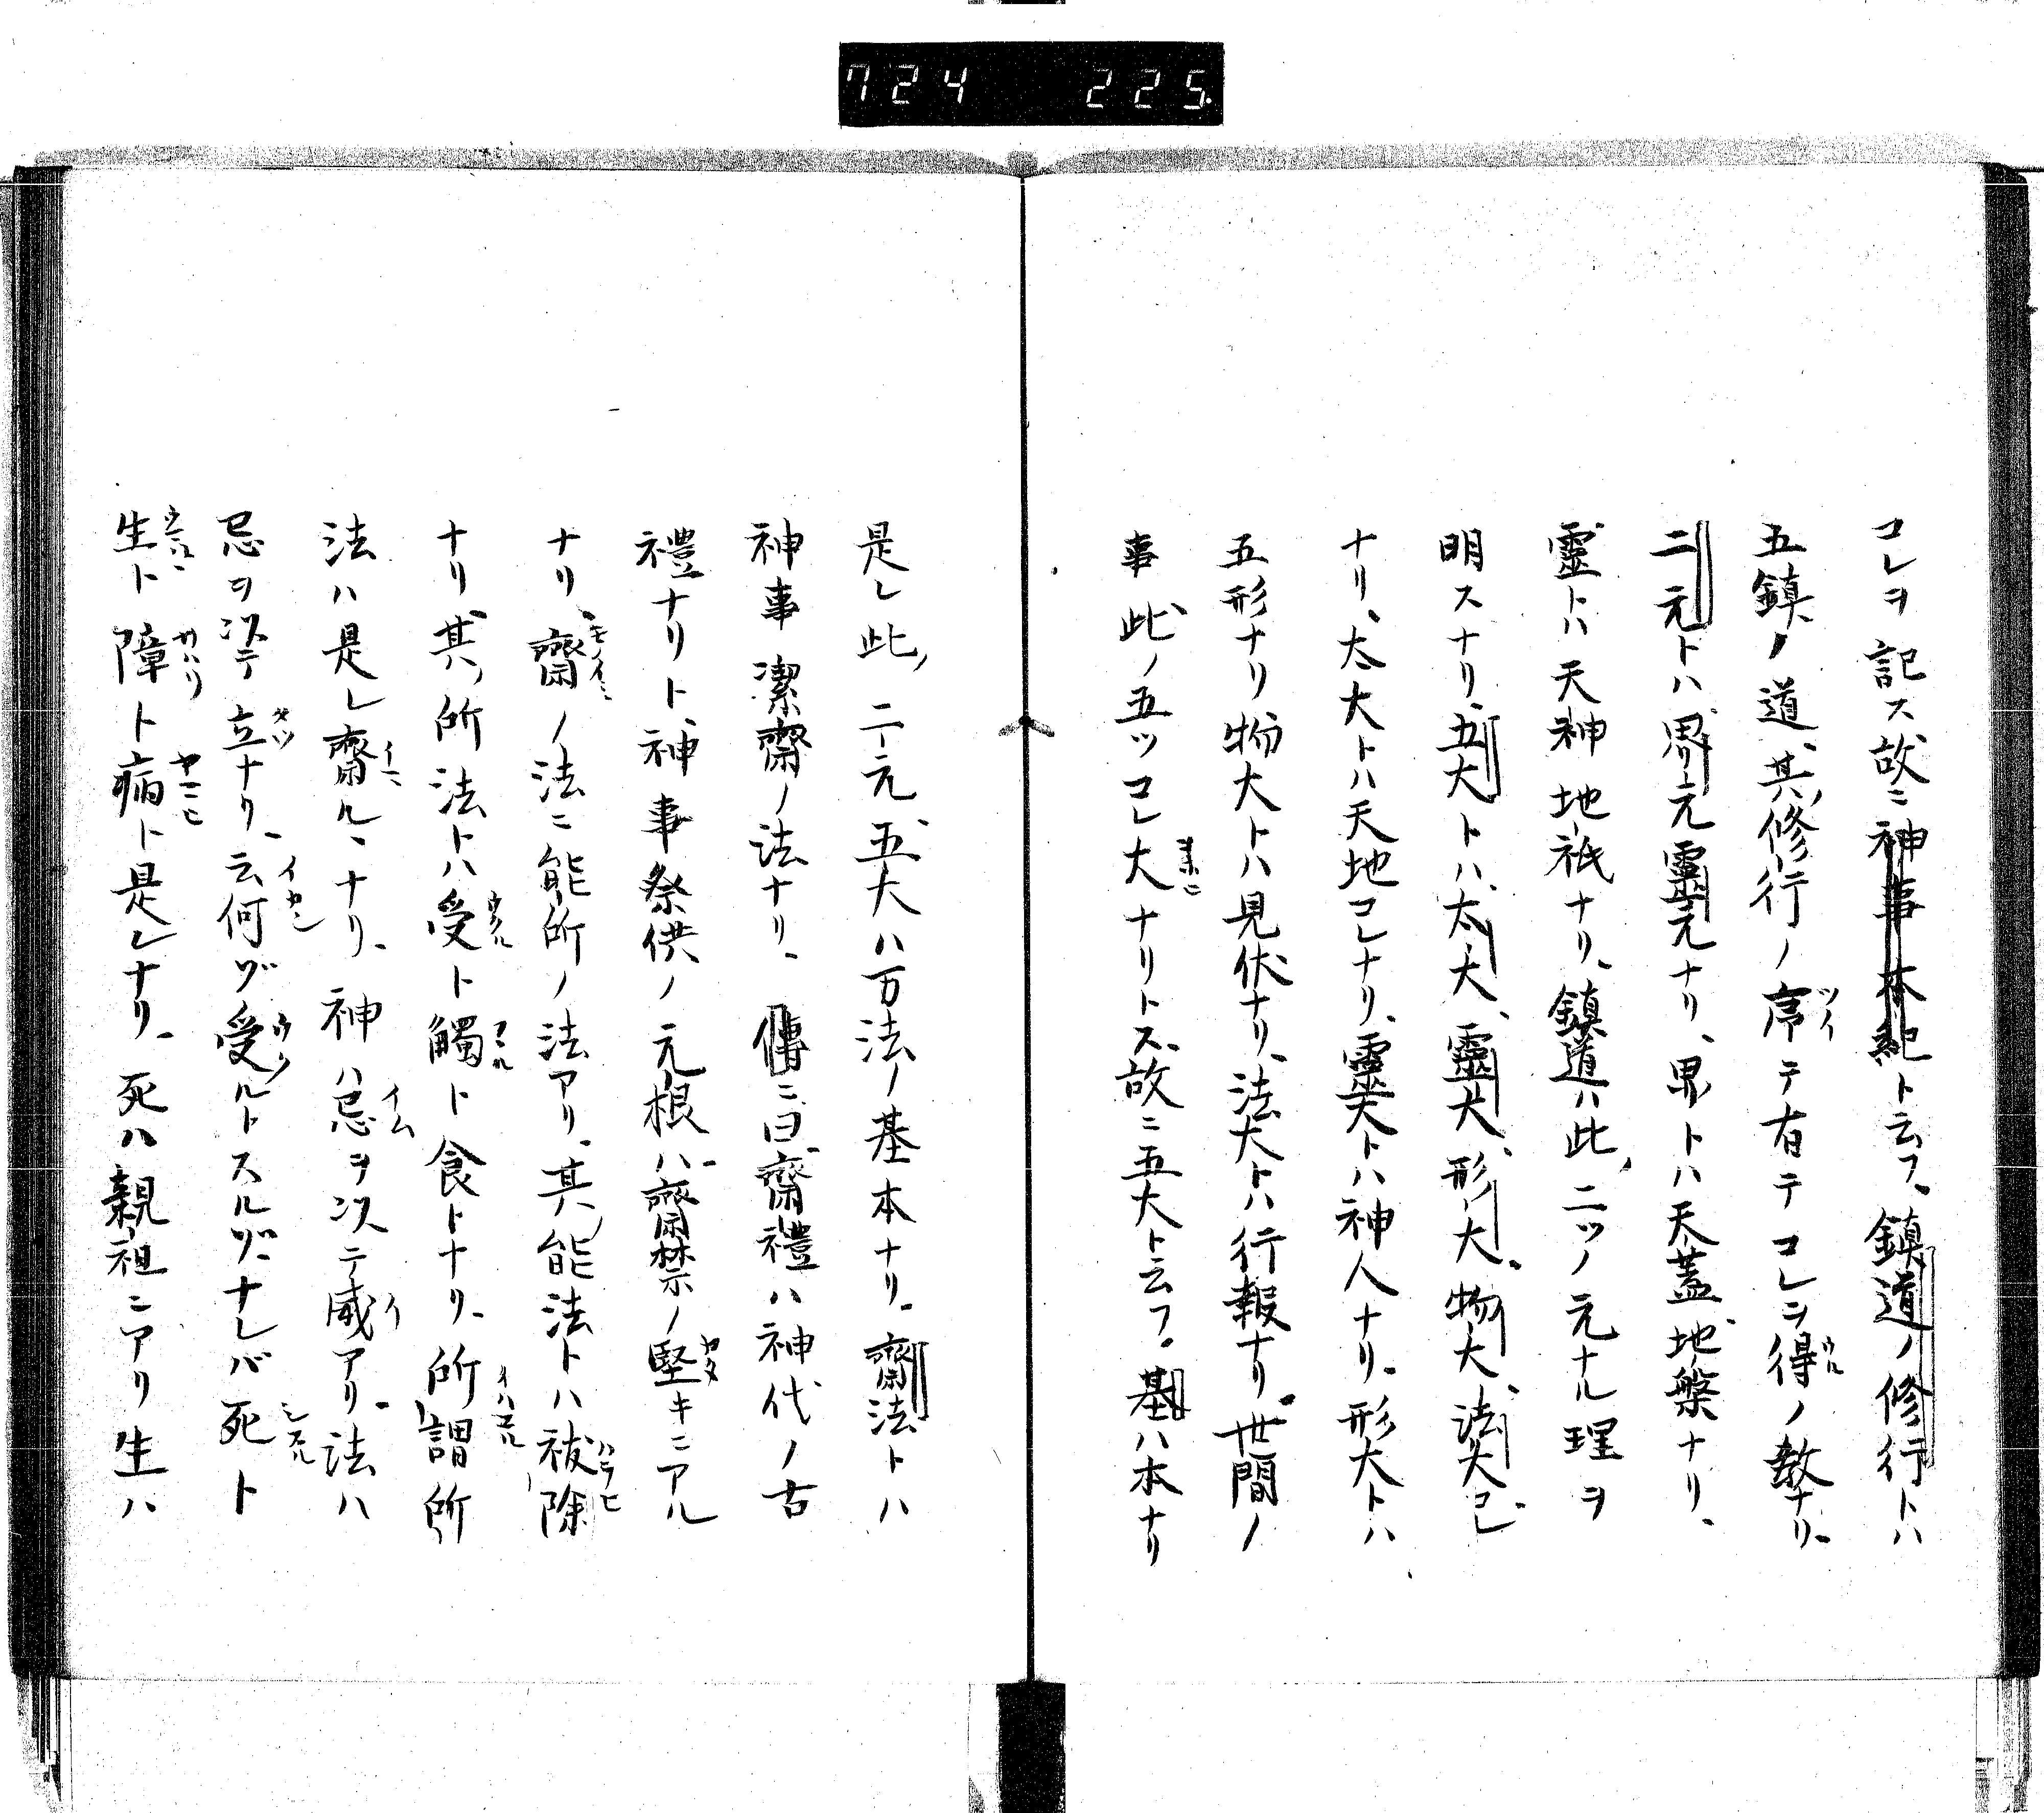 724 225
コレヲ記ス故ニ神事本紀ト云フ、鎮道ノ修行トハ
五鎮ノ道、其ノ修行ノ序テ有テコレヲ得ノ教ナリ、
二元トハ界元靈元ナリ、界トハ天蓋地槃ナリ、
靈トハ天神地祇ナリ、鎮道ハ此ノ二ツノ元ナル理ヲ
明スナリ、五大トハ、太大、靈大、形大、物大、法大コレ
ナリ、太大トハ天地コレナリ、靈大トハ神人ナリ、形大トハ
五形ナリ物大トハ見伏ナリ、法大トハ行報ナリ、世間ノ
事此ノ五ツコレ大ナリトス、故ニ五大ト云フ。基ハ本ナリ
是レ此ノ二元、五大ハ万法ノ基本ナリ、齋法トハ
神事潔齋ノ法ナリ、傳ニ曰、齋禮ハ神代ノ古
禮ナリト、神事祭供ノ元根ハ、齋禁ノ堅キニアル
ナリ、齋ノ法ニ能所ノ法アリ、其ノ能法トハ祓除
ナリ其ノ所法トハ受ト觸ト食トナリ、所謂所
法ハ是レ齋ルヽナリ、神ハ忌ヲ次テ威アリ、法ハ
忌ヲ次テ立ナリ、云何ゾ受ルトスルゾ、ナレバ死ト
生ト障ト病ト是レナリ、死ハ親祖ニアリ生ハ